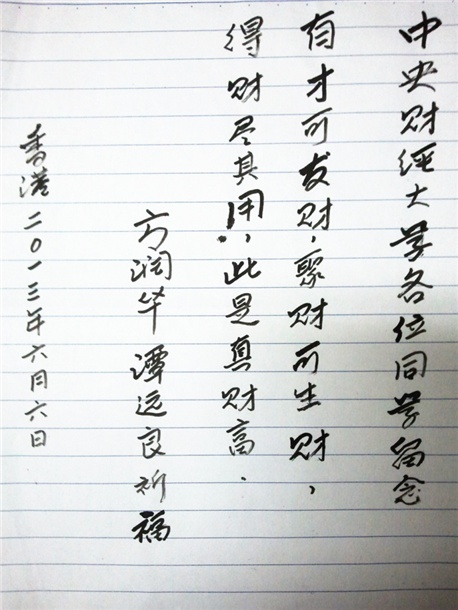 中央财经大学各位同学留念
有才可发财，聚财可生财，
得财尽其用，此是真财富.
方润华 谭远良祈福
香港二〇一三年六月六日